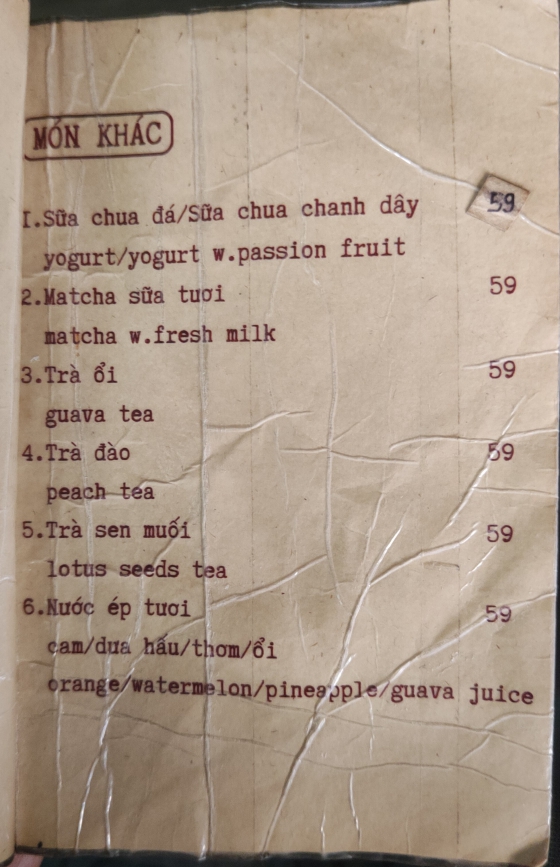 MÓN KHÁC
1.Sữa chua đá/Sữa chua chanh dây 59
yogurt/yogurt w.passion fruit
2.Matcha sữa tươi 59
matcha w.fresh milk
3.Trà ổi 59
guava tea
4.Trà đào 59
peach tea
5.Trà sen muối 59
lotus seeds tea
6.Nước ép tươi 59
cam/dưa hấu/thơm/ổi
orange/watermelon/pineapple/guava juice